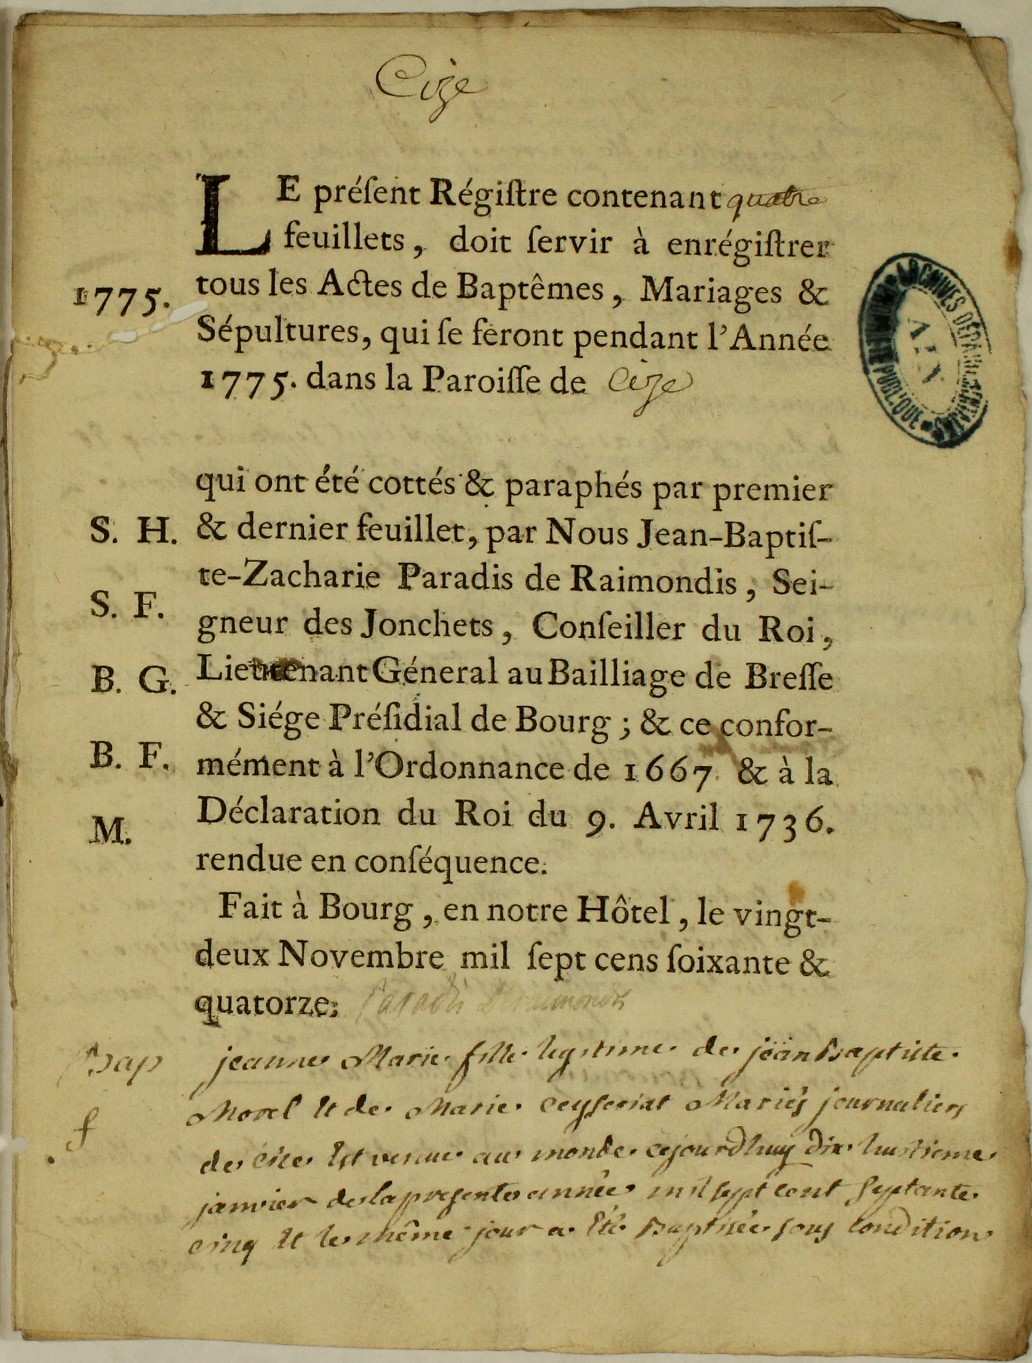 Cize
LE préſent Régiſtre contenant quatre
feuillets, doit ſervir à enrégiſtrer
1775.
tous les Actes de Baptêmes, Mariages &
Sépultures, qui ſe feront pendant l'Année
1775. dans la Paroiſſe de Cize
ARCHIVES DÉPARTEMENTALES
AIN
RÉPUBLIQUE
qui ont été cottés & paraphés par premier
S. H.
& dernier feuillet, par Nous Jean-Baptiſ-
te-Zacharie Paradis de Raimondis, Sei-
S. F.
gneur des Jonchets, Conſeiller du Roi,
B. G.
Lieutenant Géneral au Bailliage de Breſſe
& Siége Préſidial de Bourg; & ce confor-
B. F.
mément à l'Ordonnance de 1667. & à la
M.
Déclaration du Roi du 9. Avril 1736.
rendue en conſéquence.
Fait à Bourg, en notre Hôtel, le vingt-
deux Novembre mil ſept cens ſoixante &
quatorze. Paradis de Raimondis
Bap
f
jeanne Marie fille legitime de jean Baptiste
Morel et de Marie Ceyseriat Mariés journaliers
de Cize est venue au monde cejourdhuy dix huitieme
janvier de la presente année mil sept cent septante
cinq et le même jour a été Baptisée sous condition